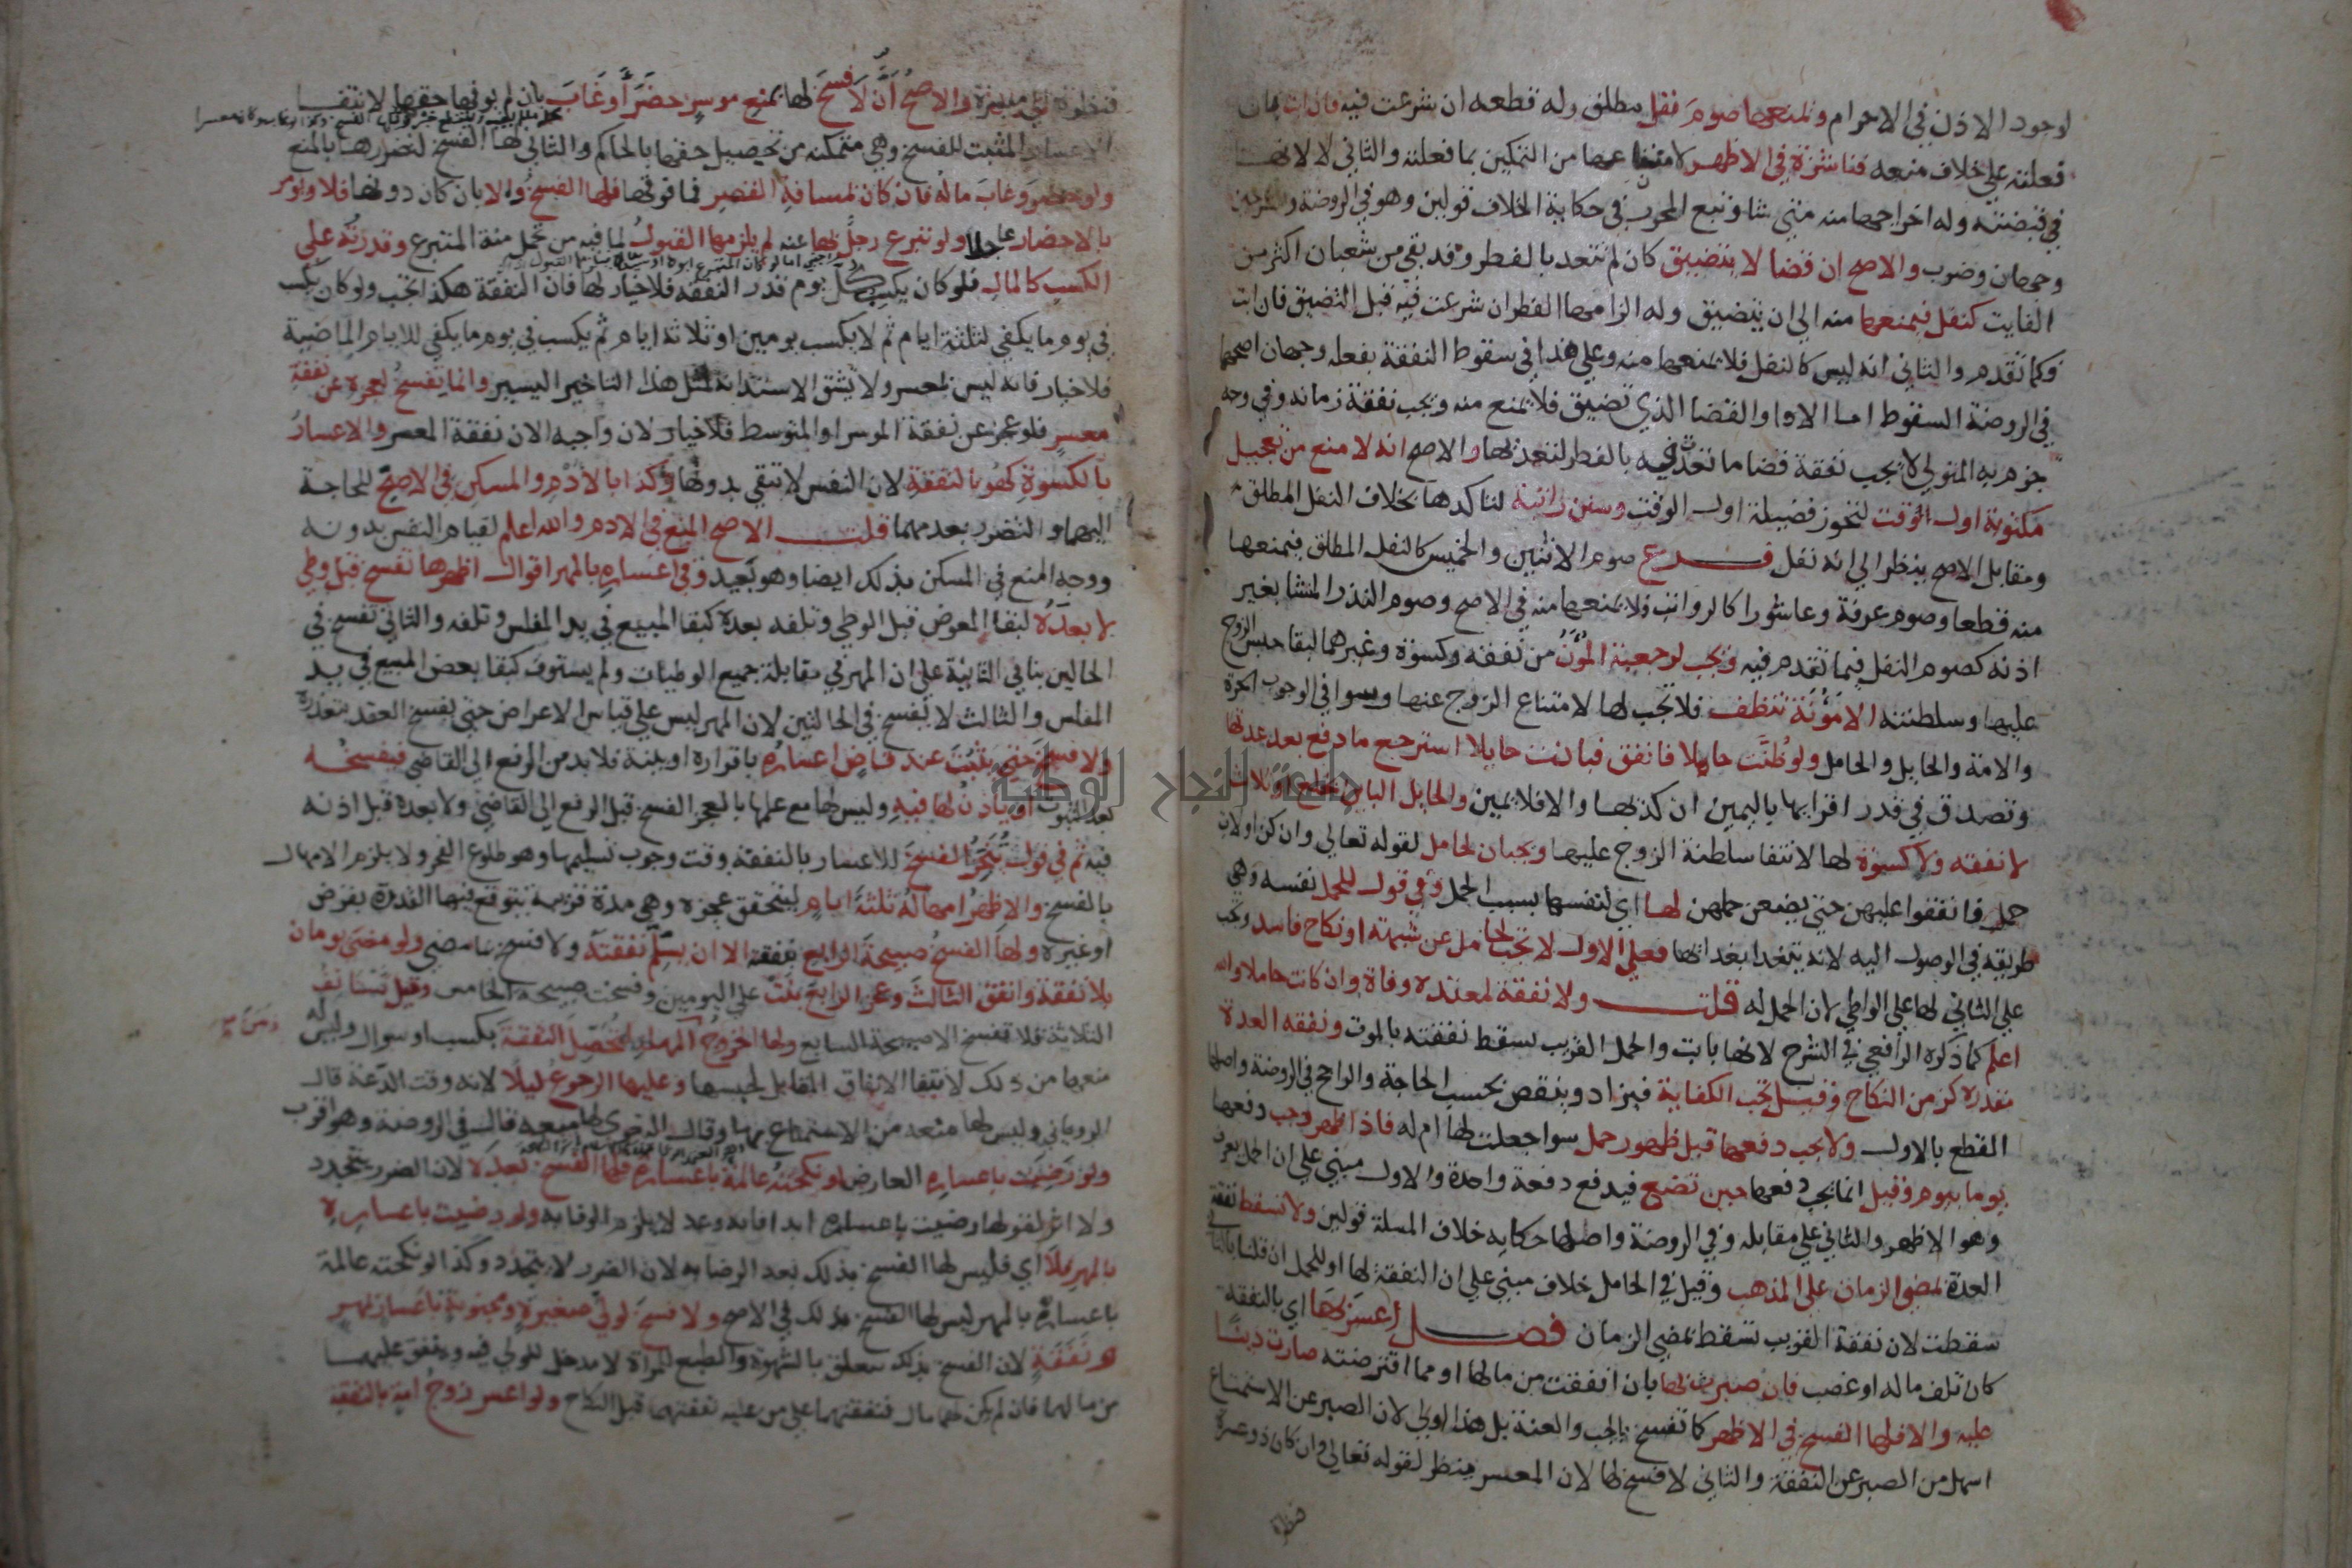 لوجود الاذن في الاحرام ويمنعها صوم نفل مطلق وله قطعه ان شرعت فيه فان ابت بان
فعلته علي خلاف منعه فناشزة في الاظهر لامتناعها من التمكين بما فعلته والثاني لا لانها
في قبضته وله اخراجها منه متي شا وتبع المحرر في حكاية الخلاف قولين وهو في الروضة والشرحين
وجهان وصوب والاصح ان قضا لا يتضيق كان لم تتعد بالفطر وقد بقي من شعبان اكثر من
الفايت كنفل فيمنعها منه الي ان يتضيق وله الزامها الفطر ان شرعت فيه قبل التضيق فان ابت
فكما تقدم والثاني انه ليس كالنفل فلا يمنعها منه وعلي هذا في سقوط النفقة بفعله وجهان اصحهما
في الروضة السقوط اما الادا والقضا الذي تضيق فلا يمنع منه وتجب نفقة زمانه وفي وجه
جزم به المتولي لا تجب نفقة قضا ما تعدت فيه بالفطر لتعديها والاصح انه لا منع من تعجيل
مكتوبة اول الوقت لتحوز فضيلة اول الوقت وسنن راتبة لتاكدها بخلاف النفل المطلق
ومقابل الاصح ينظر الي انه نفل فرع صوم الاثنين والخميس كالنفل المطلق فيمنعها
منه قطعا وصوم عرفة وعاشورا كالرواتب فلا يمنعها منه في الاصح وصوم النذر المنشا بغير
اذنه كصوم النفل فيما تقدم فيه وتجب لرجعية المؤن من نفقة وكسوة وغيرهما لبقا حبس الزوج
عليها وسلطنته الا مؤنة تنظف فلا تجب لها لامتناع الزوج عنها وسوا في الوجوب الحرة
والامة والحايل والحامل ولو ظنت حاملا فانفق فبانت حايلا استرجع ما دفع بعد عدتها
وتصدق في قدر اقرايها باليمين ان كذبها والا فلا يمين والحايل الباين بخلع او ثلاث
لا نفقه ولا كسوة لها لانتفا سلطنة الزوج عليها ويجبان لحامل لقوله تعالي وان كن اولات
حمل فانفقوا عليهن حتي يضعن حملهن لها اي لنفسها بسبب الحمل وفي قول للحمل نفسه وهي
طريقه في الوصول اليه لانه يتغدا بغداها فعلي الاول لا تجب لحامل عن شبهة او نكاح فاسد وتجب
علي الثاني لها علي الواطي لان الحمل له قلت ولا نفقة لمعتدة وفاة وان كانت حاملا والله
اعلم كما ذكره الرافعي في الشرح لانها بانت والحمل القريب تسقط نفقته بالموت ونفقه العدة
مقدرة كزمن النكاح وقيل تجب الكفاية فيزاد وينقص بحسب الحاجة والراجح في الروضة واصلها
القطع بالاول ولا يجب دفعها قبل ظهور حمل سوا جعلت لها ام له فاذا ظهر وجب دفعها
يوما بيوم وقيل انما يجب دفعها حين تضع فيدفع دفعة واحدة والاول مبني علي ان الحمل يعرف
وهو الاظهر والثاني علي مقابله وفي الروضة واصلها حكايه خلاف المسلة قولين ولا تسقط نفقة
العدة بمضي الزمان علي المذهب وقيل في الحامل خلاف مبني علي ان النفقة لها او للحمل ان قلنا بالثاني
سقطت لان نفقة القريب تسقط بمضي الزمان فصل اعسر بها اي بالنفقة
كان تلف ماله او غصب فان صبرت بها بان انفقت من مالها او مما اقترضته صارت دينا
عليه والا فلها الفسخ في الاظهر كما تفسخ بالجب والعنة بل هذا اولي لان الصبر عن الاستمتاع
اسهل من الصبر عن النفقة والثاني لا فسخ لها لان المعسر منظر لقوله تعالي وان كان ذو عسرة
فنظرة الي ميسرة والاصح ان لا فسخ لها بمنع موسر حضر او غاب بان لم يوفها حقها لانتفا
الاعسار المثبت للفسخ وهي متمكنة من تحصيل حقها بالحاكم والثاني لها الفسخ لتضررها بالمنع
ولو حضر وغاب ماله فان كان بمسافة القصر فما فوقها فلها الفسخ والا بان كان دونها فلا ويؤمر
بالاحضار عاجلا ولو تبرع رجل بها عنه لم يلزمها القبول لما فيه من تحمل منة المتبرع وقدرته علي
الكسب كالمال فلو كان يكسب كل يوم قدر النفقه فلا خيار لها فان النفقة هكذا تجب ولو كان يكسب
في يوم ما يكفي لثلثة ايام ثم لا يكسب يومين او ثلاثة ايام ثم يكسب في يوم ما يكفي للايام الماضية
فلا خيار فانه ليس بمعسر ولا يشق الاستدانة لمثل هذا التاخير اليسير وانما يفسخ لعجزه عن نفقة
معسر فلو عجز عن نفقة الموسر او المتوسط فلا خيار لان واجبه الان نفقة المعسر والاعسار
بالكسوة كهو بالنفقة لان النفس لا تبقي بدونها وكذا بالادم والمسكن في الاصح للحاجة
اليهما والتضرر بعدمهما قلت الاصح المنع في الادم والله اعلم لقيام النفس بدونه
ووجه المنع في المسكن بذلك ايضا وهو بعيد وفي اعساره بالمهر اقوال اظهرها تفسخ قبل وطي
لا بعده لبقا المعوض قبل الوطي وتلفه بعده كبقا المبيع في يد المفلس وتلفه والثاني تفسخ في
الحالين بنا في الثانية علي ان المهر في مقابلة جميع الوطيات ولم يستوف كبقا بعض المبيع في يد
المفلس والثالث لا تفسخ في الحالتين لان المهر ليس علي قياس الاعواض حتي يفسخ العقد بتعذره
ولا فسخ حتي يثبت عند قاض اعساره باقراره او بينة فلا بد من الرفع الي القاضي فيفسخه
بعد الثبوت او ياذن لها فيه وليس لها مع علمها بالعجز الفسخ قبل الرفع الي القاضي ولا بعده قبل اذنه
فيه ثم في قول ينجز الفسخ للاعسار بالنفقة وقت وجوب تسليمها وهو طلوع الفجر ولا يلزم الامهال
بالفسخ والاظهر امهاله ثلثة ايام ليتحقق عجزه وهي مدة قريبه يتوقع فيها القدرة بقرض
او غيره ولها الفسخ صبيحة الرابع بنفقه الا ان يسلم نفقته ولا فسخ بما مضي ولو مضي يومان
بلا نفقة وانفق الثالث وعجز الرابع بنت علي اليومين وفسخت صبيحة الخامس وقيل تستانف
الثلاثة فلا تفسخ الا صبيحة السابع ولها الخروج المهلة لتحصل النفقة بكسب او سوال وليس له
منعها من ذلك لانتفا الانفاق المقابل لحبسها وعليها الرجوع ليلا لانه وقت الدعة قال
الروياني وليس لها منعه من الاستمتاع بها وقال البغوي لها منعه قال في الروضة وهو اقرب
ولو رضيت باعساره العارض او نكحته عالمة باعساره فلها الفسخ بعده لان الضرر يتجدد
ولا اثر لقولها رضيت باعساره ابدا فانه وعد لا يلزم الوفا به ولو رضيت باعساره
بالمهر فلا اي فليس لها الفسخ بذلك بعد الرضا به لان الضرر لا يتجدد وكذا لو نكحته عالمة
باعساره بالمهر ليس لها الفسخ بذلك في الاصح ولا فسخ لولي صغيرة ومجنونة باعسار بمهر
ونفقة لان الفسخ بذلك يتعلق بالشهوة والطبع للمراة لا مدخل للولي فيه وينفق عليهما
من مالهما فان لم يكن لهما مال فنفقتهما علي من عليه نفقتهما قبل النكاح ولو اعسر زوج امة بالنفقة
جامعة النجاح الوطنية